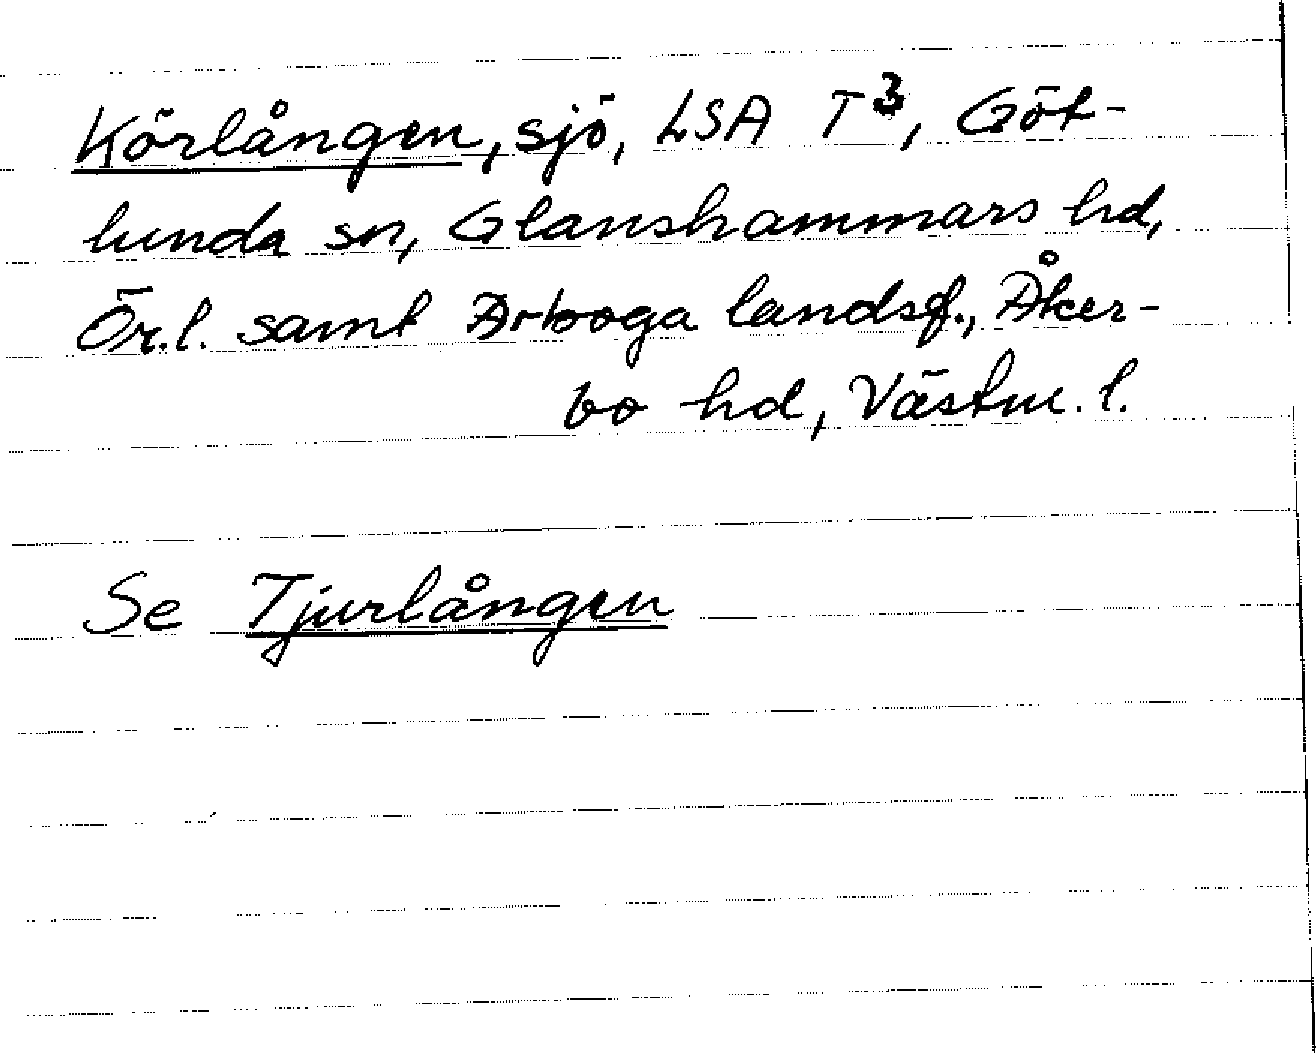 Körlången, sjö, LSA T³, Göt-
lunda sn, Glanshammars hd,
Ör.l. samt Arboga landsf., Åker-
bo hd, Västm. l.
Se Tjurlången